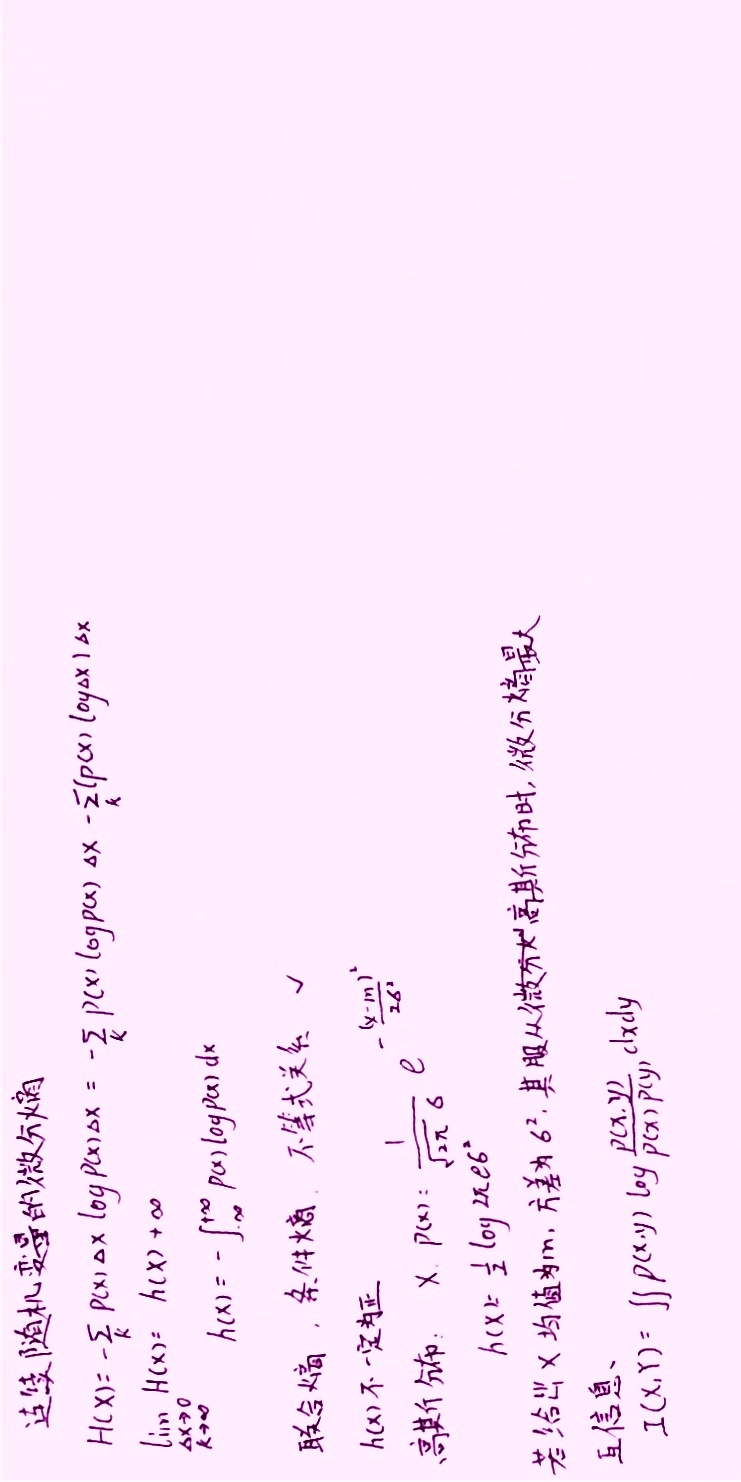 连续随机变量的微分熵
H(X)= -∑_k p(x)Δx log p(x)Δx = -∑_k p(x) log p(x) Δx -∑_k (p(x) logΔx) Δx
lim_{Δx→0, k→∞} H(X)= h(X) + ∞
h(X) = -∫_{-∞}^{+∞} p(x) log p(x) dx
联合熵, 条件熵. 不等式关系 ✓
h(X) 不一定为正
高斯分布: X. p(x): \frac{1}{\sqrt{2π} 6} e^{-\frac{(x-m)^2}{26^2}}
h(X)= \frac{1}{2} log 2πe6^2
若给出 X 均值为m, 方差为 6^2, 其服从高斯分布时, 微分熵最大
互信息、
I(X,Y) = ∬ p(x,y) log \frac{p(x,y)}{p(x)p(y)} dxdy